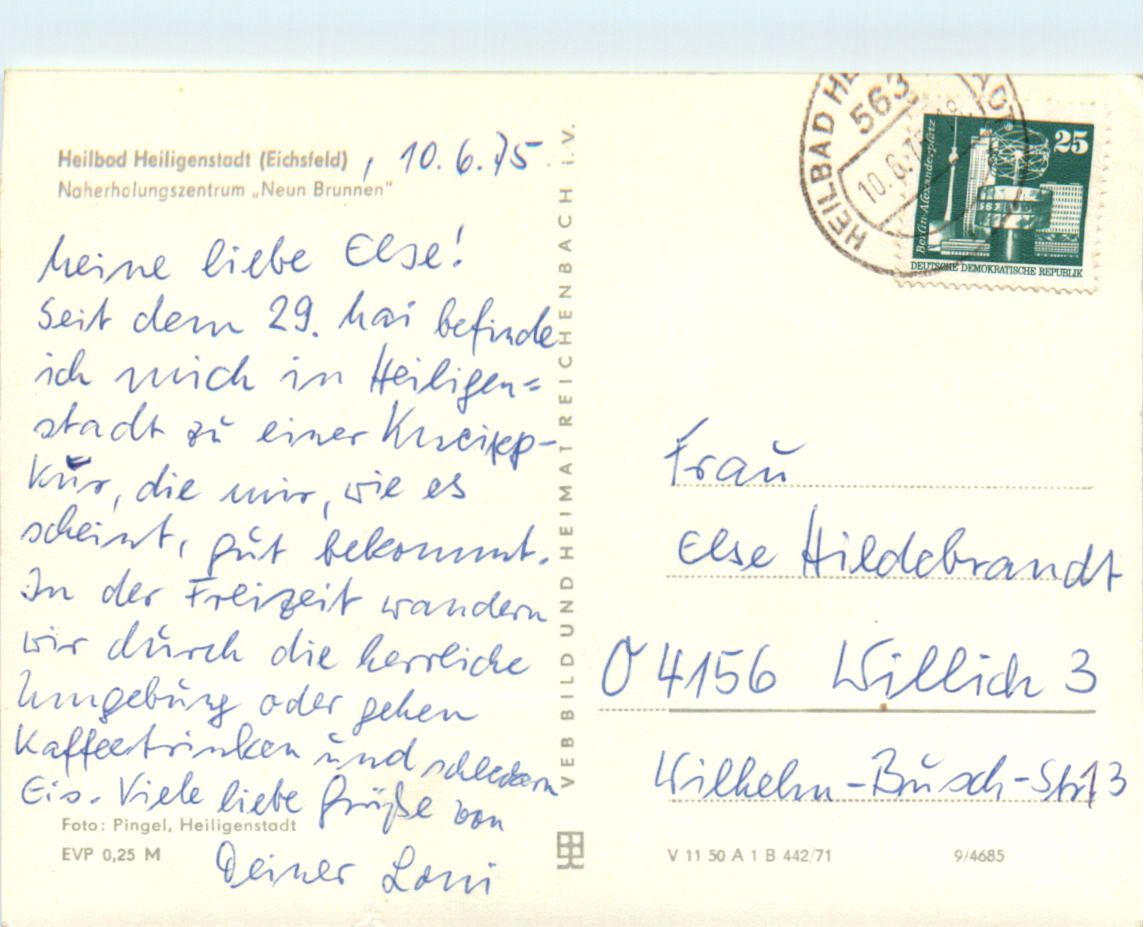 Heilbad Heiligenstadt (Eichsfeld) , 10.6.75
Naherholungszentrum „Neun Brunnen"
Meine liebe Else!
Seit dem 29. Mai befinde
ich mich in Heiligen=
stadt zu einer Kneipp-
Kur, die mir, wie es
scheint, gut bekommt.
In der Freizeit wandern
wir durch die herrliche
Umgebung oder gehen
Kaffeetrinken und schleckern
Eis. Viele liebe Grüße von
Deiner Loni
Foto: Pingel, Heiligenstadt
EVP 0,25 M
VEB BILD UND HEIMAT REICHENBACH i. V.
HEILBAD HE
563
10.6.7
25
Berlin-Alexanderplatz
DEUTSCHE DEMOKRATISCHE REPUBLIK
Frau
Else Hildebrandt
4156 Willich 3
Wilhelm-Busch-Str 13
V 11 50 A 1 B 442/71
9/4685